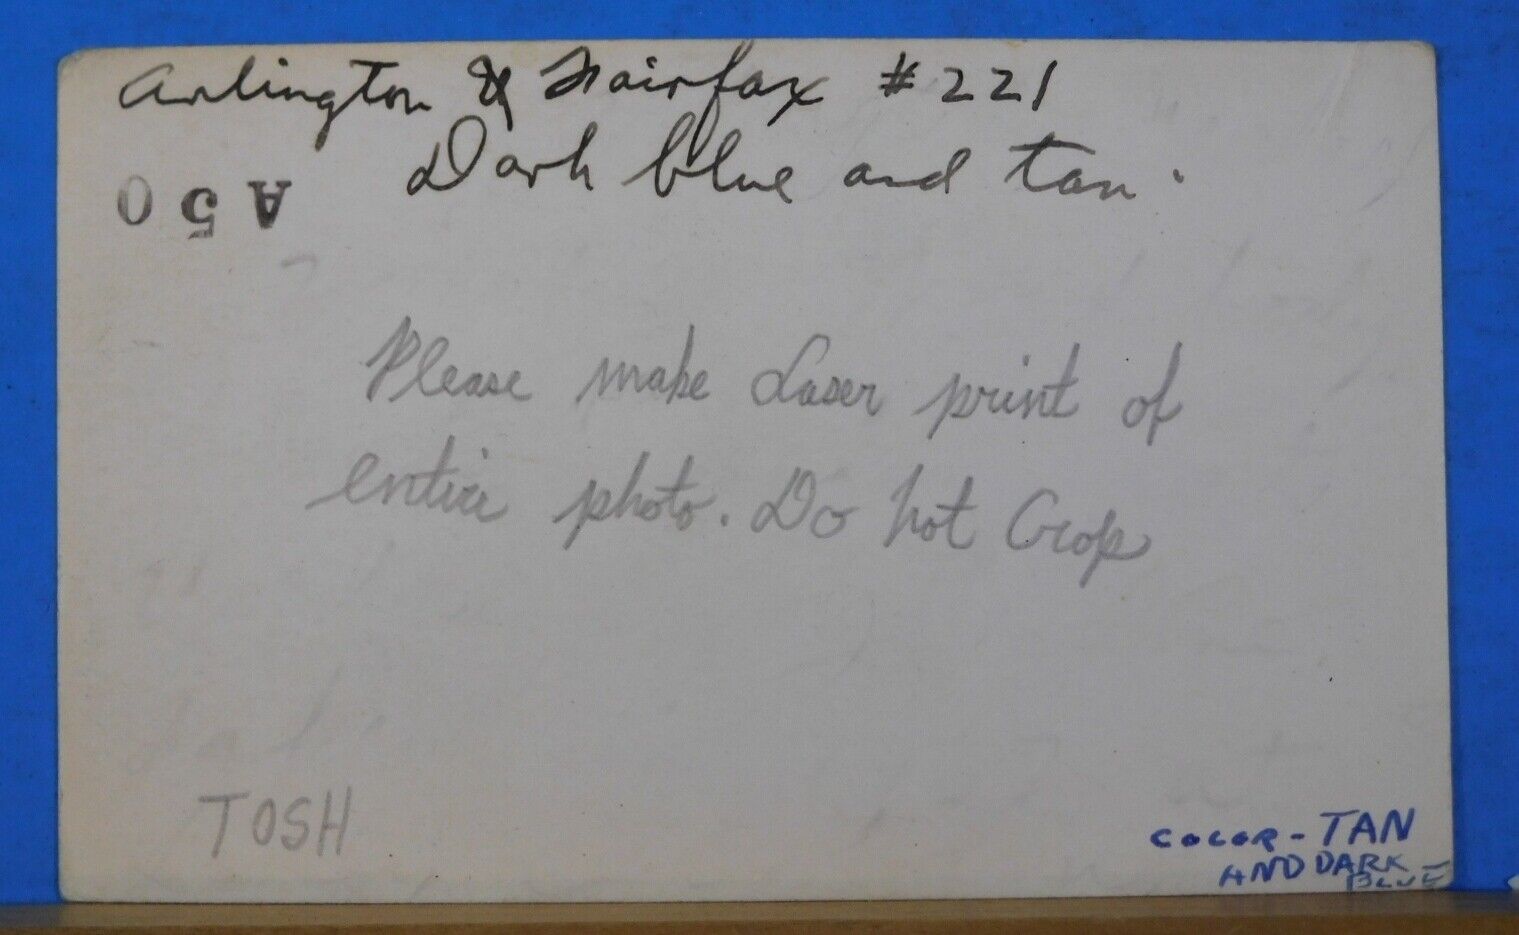 Arlington & Fairfax #221
Dark blue and tan.
A50
Please make Laser print of
entire photo. Do not Crop
TOSH
COLOR - TAN
AND DARK
BLUE